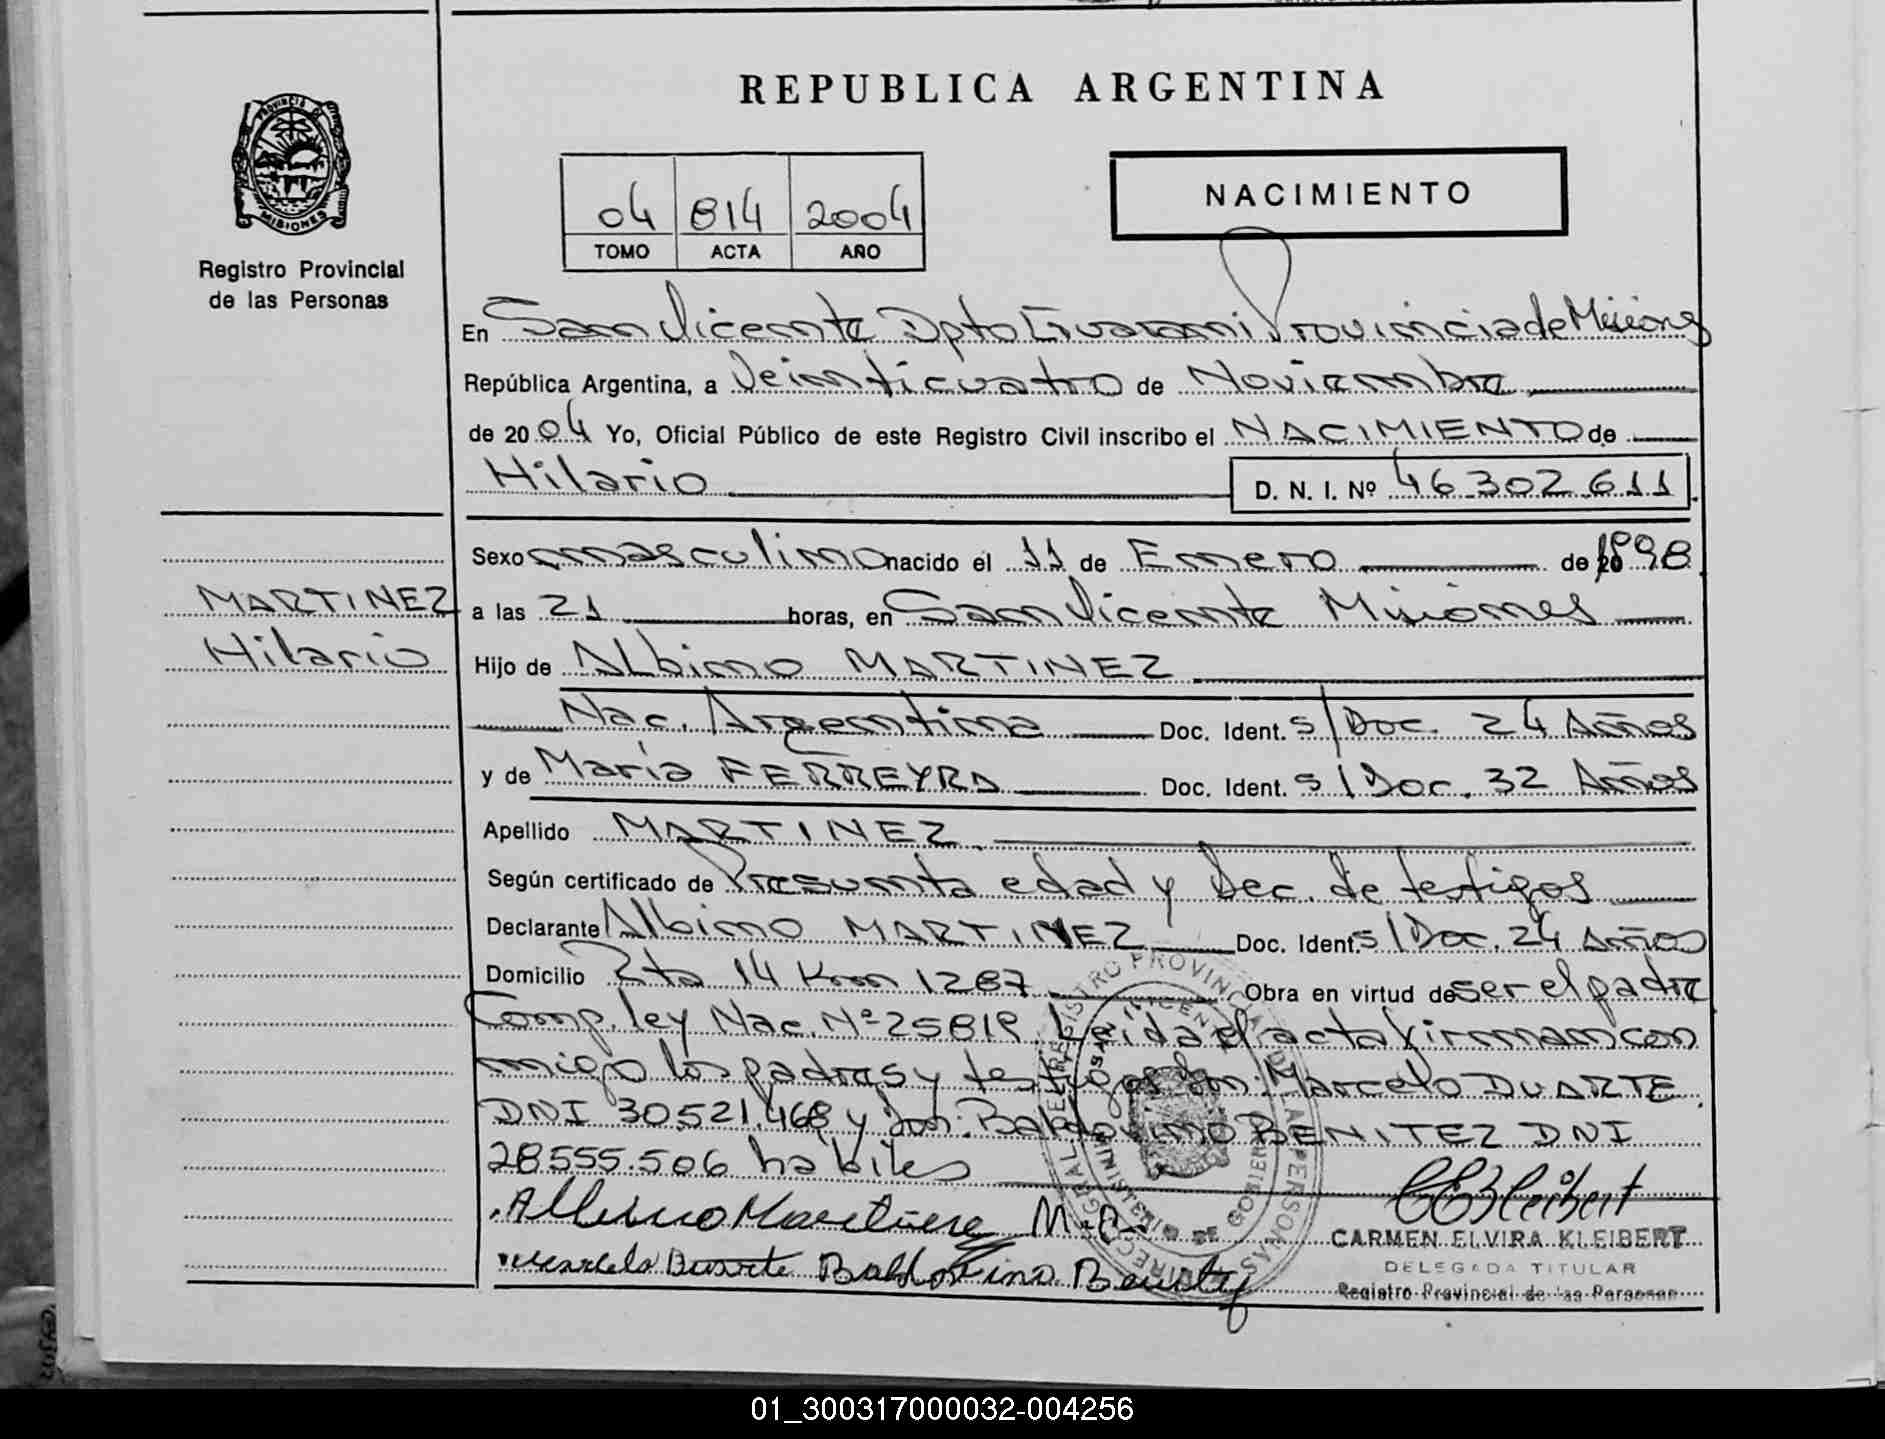 REPUBLICA ARGENTINA
PROVINCIA DE
MISIONES
Registro Provincial
de las Personas
04 814 2004
TOMO ACTA AÑO
NACIMIENTO
En San Vicente Dpto Guarani Provincia de Misiones
República Argentina, a Veinticuatro de Noviembre
de 2004 Yo, Oficial Público de este Registro Civil inscribo el NACIMIENTO de
Hilario D. N. I. Nº 46302611
Sexo masculino nacido el 11 de Enero de 1998
MARTINEZ
Hilario
a las 21 horas, en San Vicente Misiones
Hijo de Albino MARTINEZ
Nac. Argentina Doc. Ident. s/Doc. 24 Años
y de María FERREYRA Doc. Ident. s/Doc. 32 Años
Apellido MARTINEZ
Según certificado de Presunta edad y Dec. de testigos
Declarante Albino MARTINEZ Doc. Ident. s/Doc. 24 Años
Domicilio Rta 14 Km 1287 Obra en virtud de ser el padre
Comp. ley Nac. Nº 25819. Leida el acta firman con
migo los padres y testigos Don: Marcelo DUARTE
DNI 30.521.468 y Don: Baldovino BENITEZ DNI
28555.506 habiles
Albino Martinez M.C.
Marcelo Duarte Baldovino Benitez
CEKleibert
CARMEN ELVIRA KLEIBERT
DELEGADA TITULAR
Registro Provincial de las Personas
01_300317000032-004256